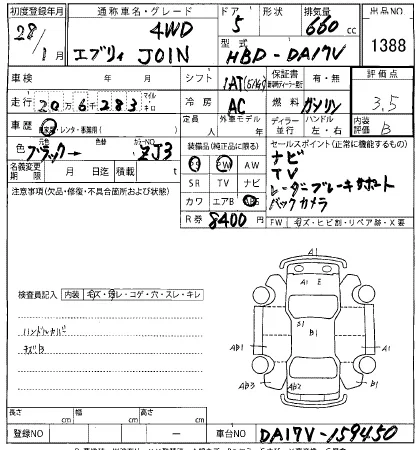 初度登録年月 通称車名・グレード ドア 形状 排気量 出品NO
28年 4WD 5 660cc
1月 エブリィ JOIN 型式 HBD-DA17V 1388
車検 年 月 シフト 保証書 有・無 評価点
走行 20万6千283 マイル キロ 冷房 AC 燃料 ガソリン 3.5
車歴 レンタ・事業用( ) 定員 人 外車モデル 年 ディーラー 並行 ハンドル 左・右 内装評価 B
色 元色 ブラック→ 色替 カラーNO ZJ3 装備品(純正品に限る) セールスポイント(正常に機能するもの)
名義変更期限 月 日 積載 t PS PW AW ナビ
注意事項(欠品・修復・不具合箇所および状態) SR TV ナビ TV
カワ エアB レーダーブレーキサポート
R券 8400円 バックカメラ
FW キズ・ヒビ割・リペア跡・X要
検査員記入 内装 キズ・汚レ・コゲ・穴・スレ・キレ
ハンドルカバー
キズB
A1
A1 E
S1 B1
AB1 A1
AB3 AB2 B1
A1
長さ cm 幅 cm 高さ cm
登録NO 車台NO DA17V-159450